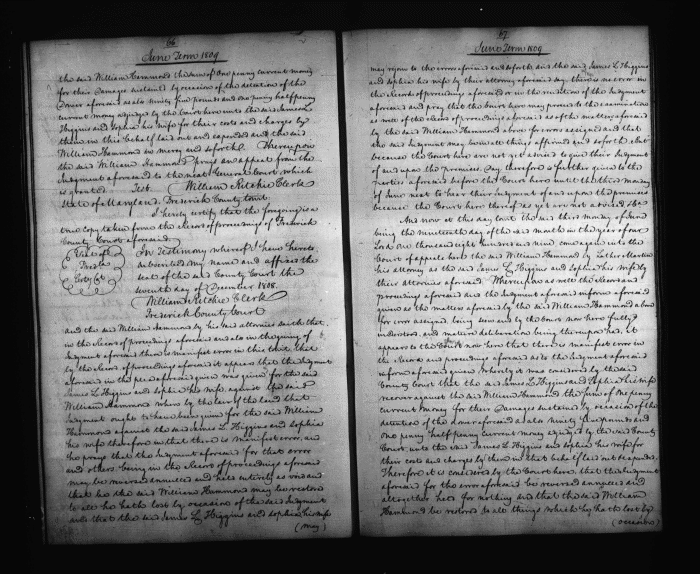 66
June Term 1809
the said William Hammond the sum of One penny current money
for their Damages sustained by occasion of the detention of the
Dower aforesaid as also ninety five pounds and one penny half penny
current money adjudged by the Court here unto the said James L
Higgins and Sophia his Wife for their costs and charges by
them in this behalf laid out and expended and the said
William Hammond in mercy and so forth &c. Whereupon
the said William Hammond prays an appeal from the
Judgment aforesaid to the next General Court which
is granted Test. William Ritchie Clerk
State of Maryland, Frederick County to wit.
I hereby certify that the foregoing is a
true copy taken from the Record of proceedings of Frederick
County Court aforesaid
Seal of
Fredk
Coty Ct
In Testimony whereof I have hereto
subscribed my name and affixed the
seal of the said County Court the
seventh day of December 1808.
William Ritchie Clerk
Frederick County Court
and the said William Hammond by his said attornies saith that
in the Record of proceedings aforesaid and also in the giving of
Judgment aforesaid there is manifest error in this to wit that
by the Record of proceedings aforesaid it appears that the Judgment
aforesaid in the plea aforesaid given was given for the said
James L Higgins and Sophia his Wife against the said
William Hammond where by the law of the land that
Judgment ought to have been given for the said William
Hammond against the said James L. Higgins and Sophia
his wife therefore in that there is manifest error, and
he prays that the Judgment aforesaid for that error
and others being in the Record of proceedings aforesaid
may be reversed annulled and held entirely as void and
that he the said William Hammond may be restored
to all he hath lost by occasion of the said Judgment
and that the said James L Higgins and Sophia his Wife
(may)
67
June Term 1809
may rejoin to the errors aforesaid and so forth and the said James L Higgins
and Sophia his wife by their attorney aforesaid say there is no error in
the Record of proceedings aforesaid or in the rendition of the Judgment
aforesaid and pray that the Court here may proceed to the examination
as well of the Record of proceedings aforesaid as of the matters aforesaid
by the said William Hammond above for error assigned and that
the said Judgment may be in all things affirmed and so forth &c. but
because the Court here are not yet advised to give their Judgment
of and upon the premises Day therefore is further given to the
parties aforesaid before the Court here until the third monday
of June next to hear their Judgment of and upon the premises
because the Court here thereof as yet are not advised &c.
And now at this day to wit the said third Monday of June
being the nineteenth day of the said month in the year of our
Lord one thousand eight hundred and nine come again into the
Court of appeals here the said William Hammond by Luther Martin
his attorney as the said James L Higgins and Sophia his Wife by
their attornies aforesaid. Whereupon as well the Record and
proceedings aforesaid and the Judgment aforesaid in form aforesaid
given as the matters aforesaid by the said William Hammond above
for error assigned being seen and by the Court now here fully
understood and mature deliberation being thereupon had, it
appears to the Court now here that there is manifest error in
the Record and proceedings aforesaid as to the Judgment aforesaid
in form aforesaid given Whereby it was considered by the said
County Court that the said James L Higgins and Sophia his Wife
recover against the said William Hammond the sum of One penny
current Money for their Damages sustained by occasion of the
detention of the dower aforesaid as also ninety five pounds and
one penny half penny current money adjudged by the said County
Court unto the said James L Higgins and Sophia his wife for
their costs and charges by them in that behalf laid out & expended.
Therefore it is considered by the Court here, that the Judgment
aforesaid for the error aforesaid be reversed annulled and
altogether held for nothing and that the said William
Hammond be restored to all things which he hath lost by
(occasion)